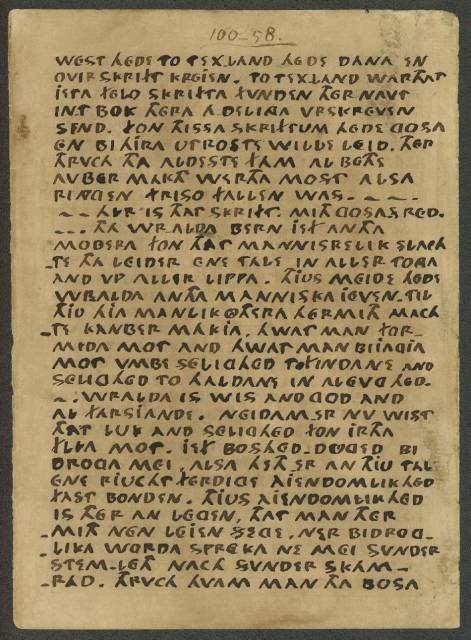 100-58.
WEST HEDE TO TEXLAND HEDE DANA EN
OVIRSKRIFT KREJEN. TO TEXLAND WARTHAT
JETA FELO SKRIFTA FUNDEN THER NAVT
INT BOK THERA ADELINGA VRSKREVEN
SEND. FON THISSA SKRIFTUM HEDE GOSA
EN BI HJRA UTROSTE WILLE LEID. THER
THRVCH THA ALDESTE FAM ALBETHE
AVBER MAKTH WERTHA MOST ALSA
RINGEN FRISO FALLEN WAS. ~ ~ ~
~ ~ HYR IS THAT SKRIFT MITH GOSA.S RED.
~ ... THA WRALDA BERN JEF ANTHA
MODERA FON THAT MANNISKELIK SLACH
TE THA LEIDER ENE TALE IN ALLER TONGA
AND VP ALLER LIPPA. THIUS MEIDE HEDE
WRALDA ANTHA MANNISKA JEVEN. TIL
THIU HJA MANLIKOTHERA THERMITH MACH
- TE KANBER MAKJA, HWAT MAN FOR-
MIDA MOT AND HWAT MAN BIJAGJA
MOT VMBE SELIGHED TO FINDANE AND
SELIGHED TO HALDANE IN AL EVGHED.
~ . WRALDA IS WIS AND GOD AND
AL FARSJANDE. NEIDAM ER NV WIST
THAT LUK AND SELIGHED FON IRTHA
FLYA MOT. JEF BOSHED DVGED BI
DROGA MEI, ALSA HETH ER AN THIU TAL-
ENE RIUCHTFERDIGE AJENDOMLIKHED
FAST BONDEN. THIUS AJENDOMLIKHED
IS THER AN LEGEN, THAT MAN THER
- MITH NEN LEJEN SEGE, NER BIDROG-
- LIKA WORDA SPREKA NE MEI SUNDER
STEM-LETH NACH SUNDER SKAM-
- RAD. THRVCH HVAM MAN THA BOSA